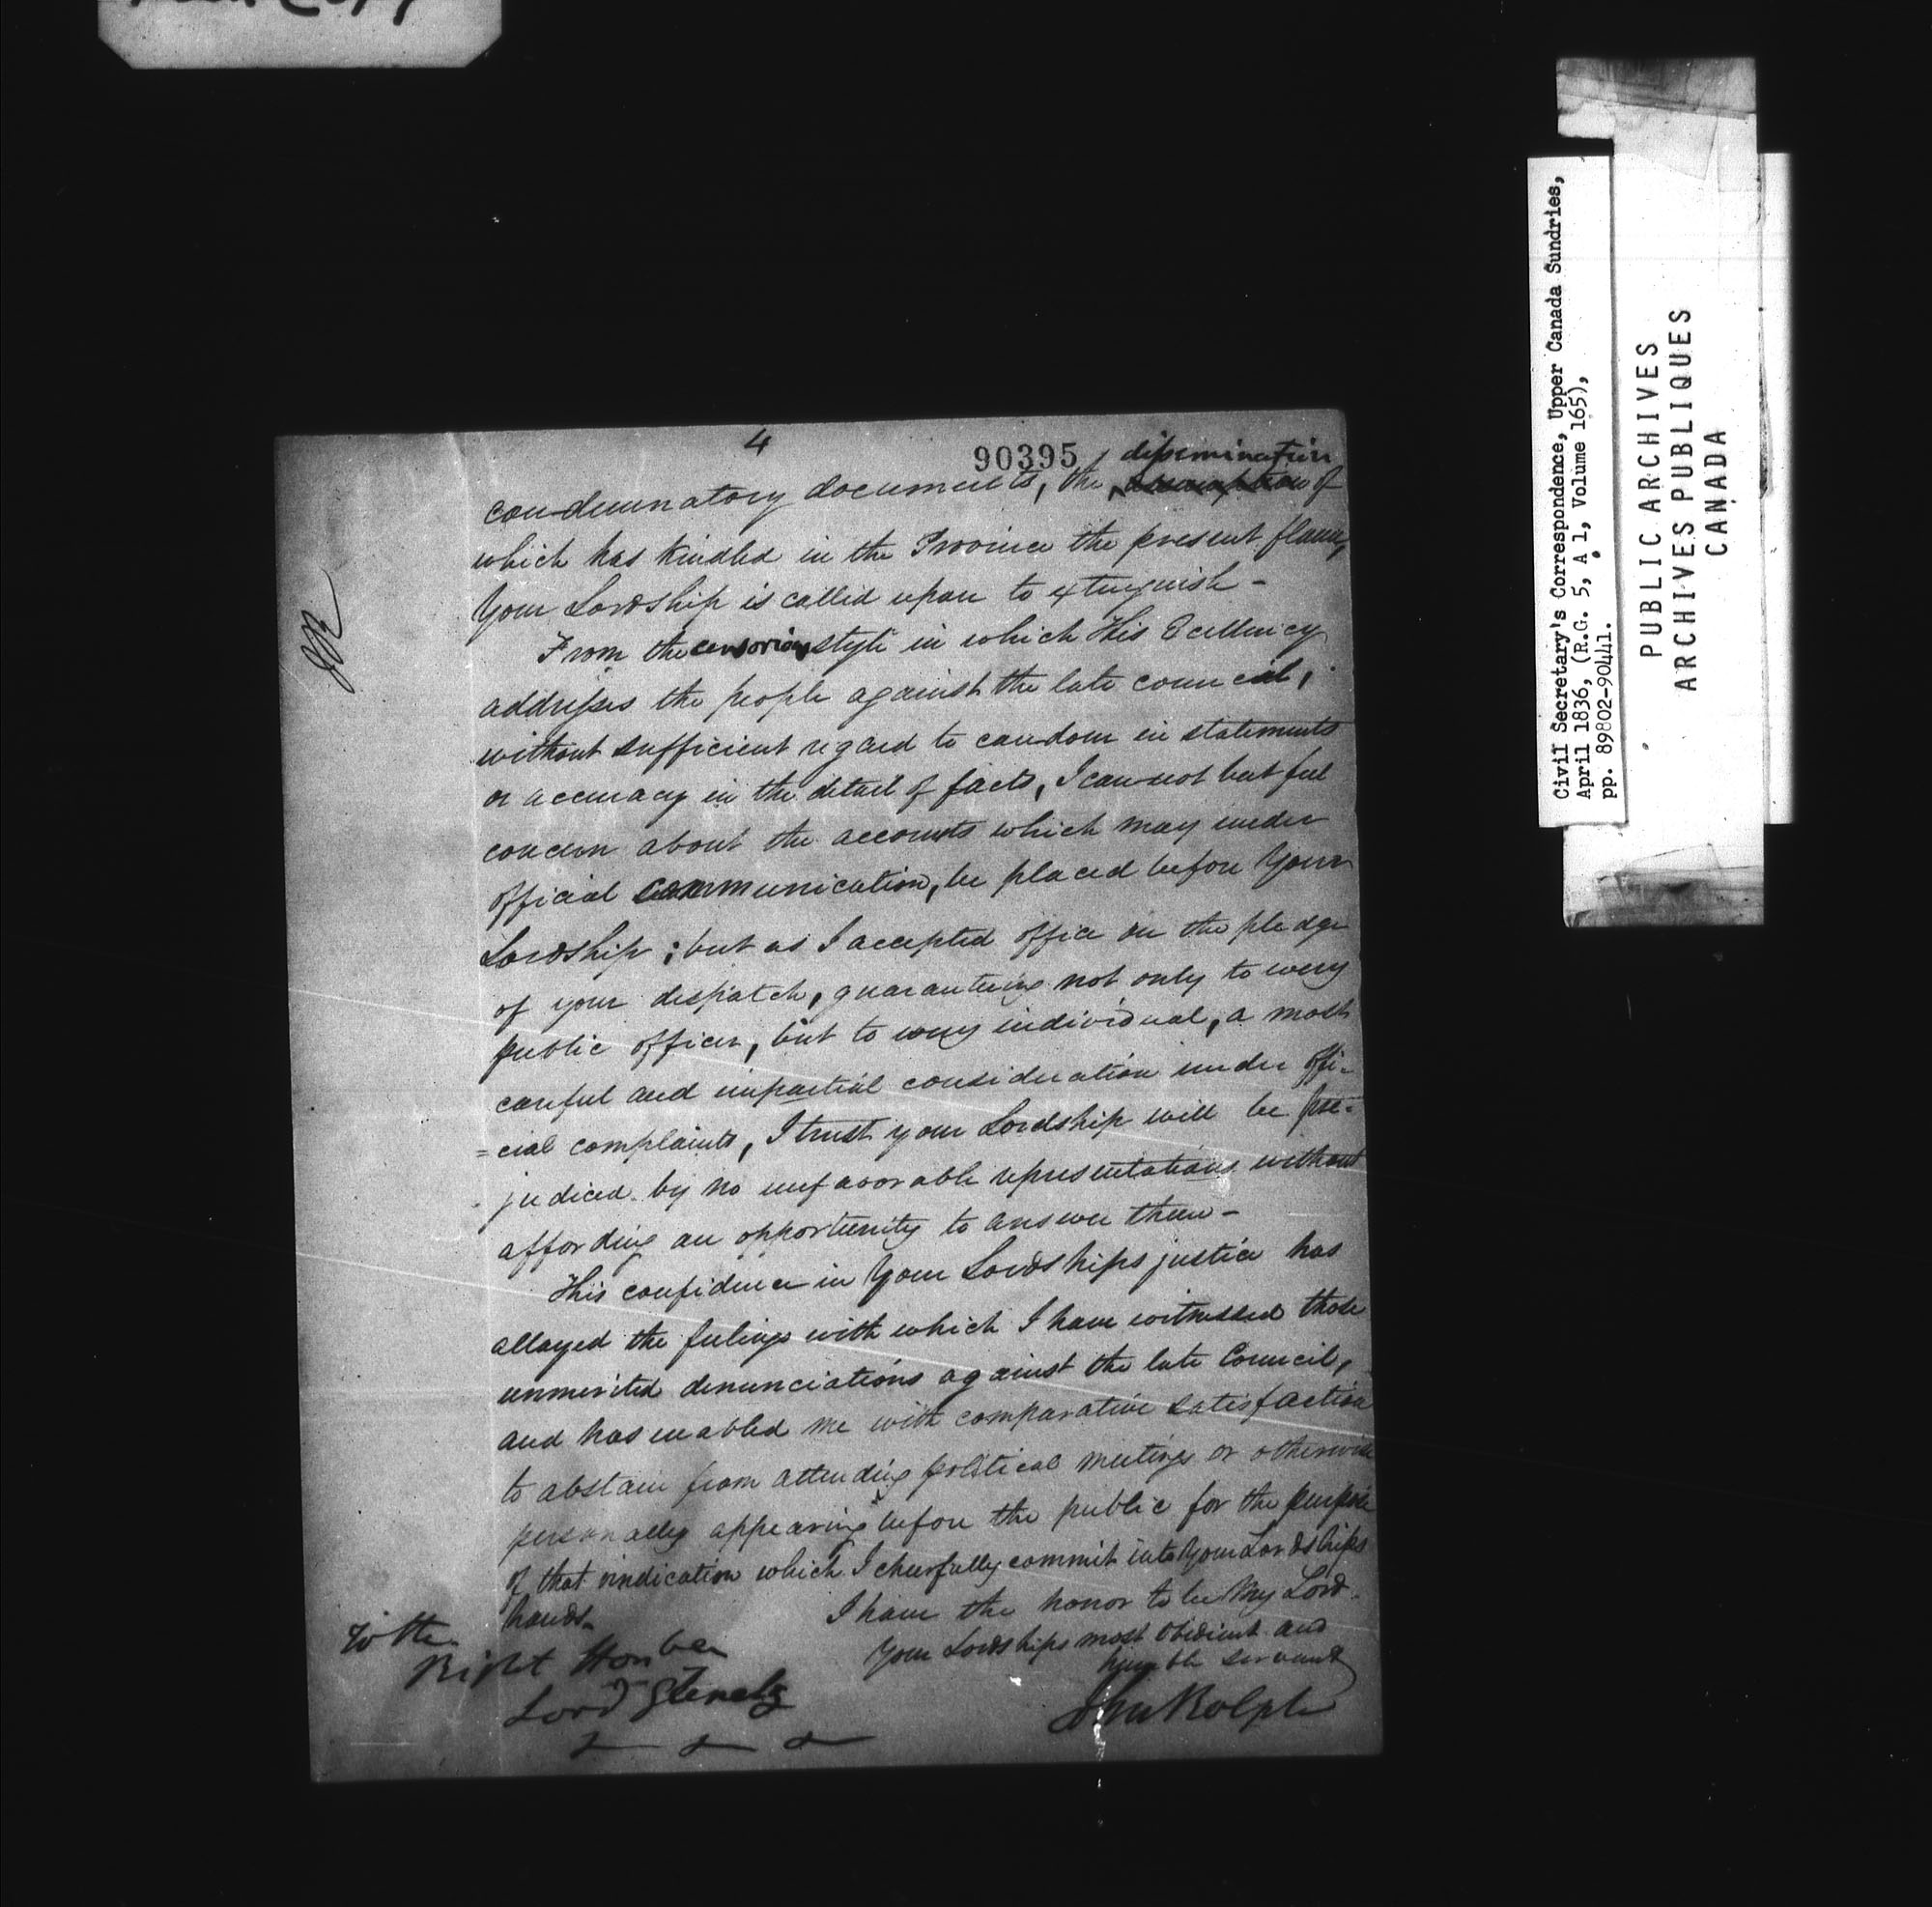 4
90395
condemnatory documents, the dissemination of
which has kindled in the Province the present flame,
Your Lordship is called upon to extinguish -
From the censorious style in which His Excellency
addresses the people against the late council,
without sufficient regard to candour in statements
or accuracy in the detail of facts, I can not but feel
concern about the accounts which may under
official communication, be placed before Your
Lordship; but as I accepted office on the pledge
of your despatch, guaranteeing not only to every
public officer, but to every individual, a most
careful and impartial consideration under offi-
=cial complaints, I trust your Lordship will be pre-
judiced by no unfavorable representations without
affording an opportunity to answer them -
This confidence in Your Lordships justice has
allayed the feelings with which I have witnessed those
unmerited denunciations against the late Council,
and has enabled me with comparative satisfaction
to abstain from attending political meetings or otherwise
personally appearing before the public for the purpose
of that vindication which I cheerfully commit into Your Lordships
hands.
I have the honor to be My Lord
Your Lordships most obedient and
humble servant
John Rolph
To the
Right Honble
Lord Glenelg
Civil Secretary's Correspondence, Upper Canada Sundries,
April 1836, (R.G. 5, A 1, Volume 165),
pp. 89802-90441.
PUBLIC ARCHIVES
ARCHIVES PUBLIQUES
CANADA